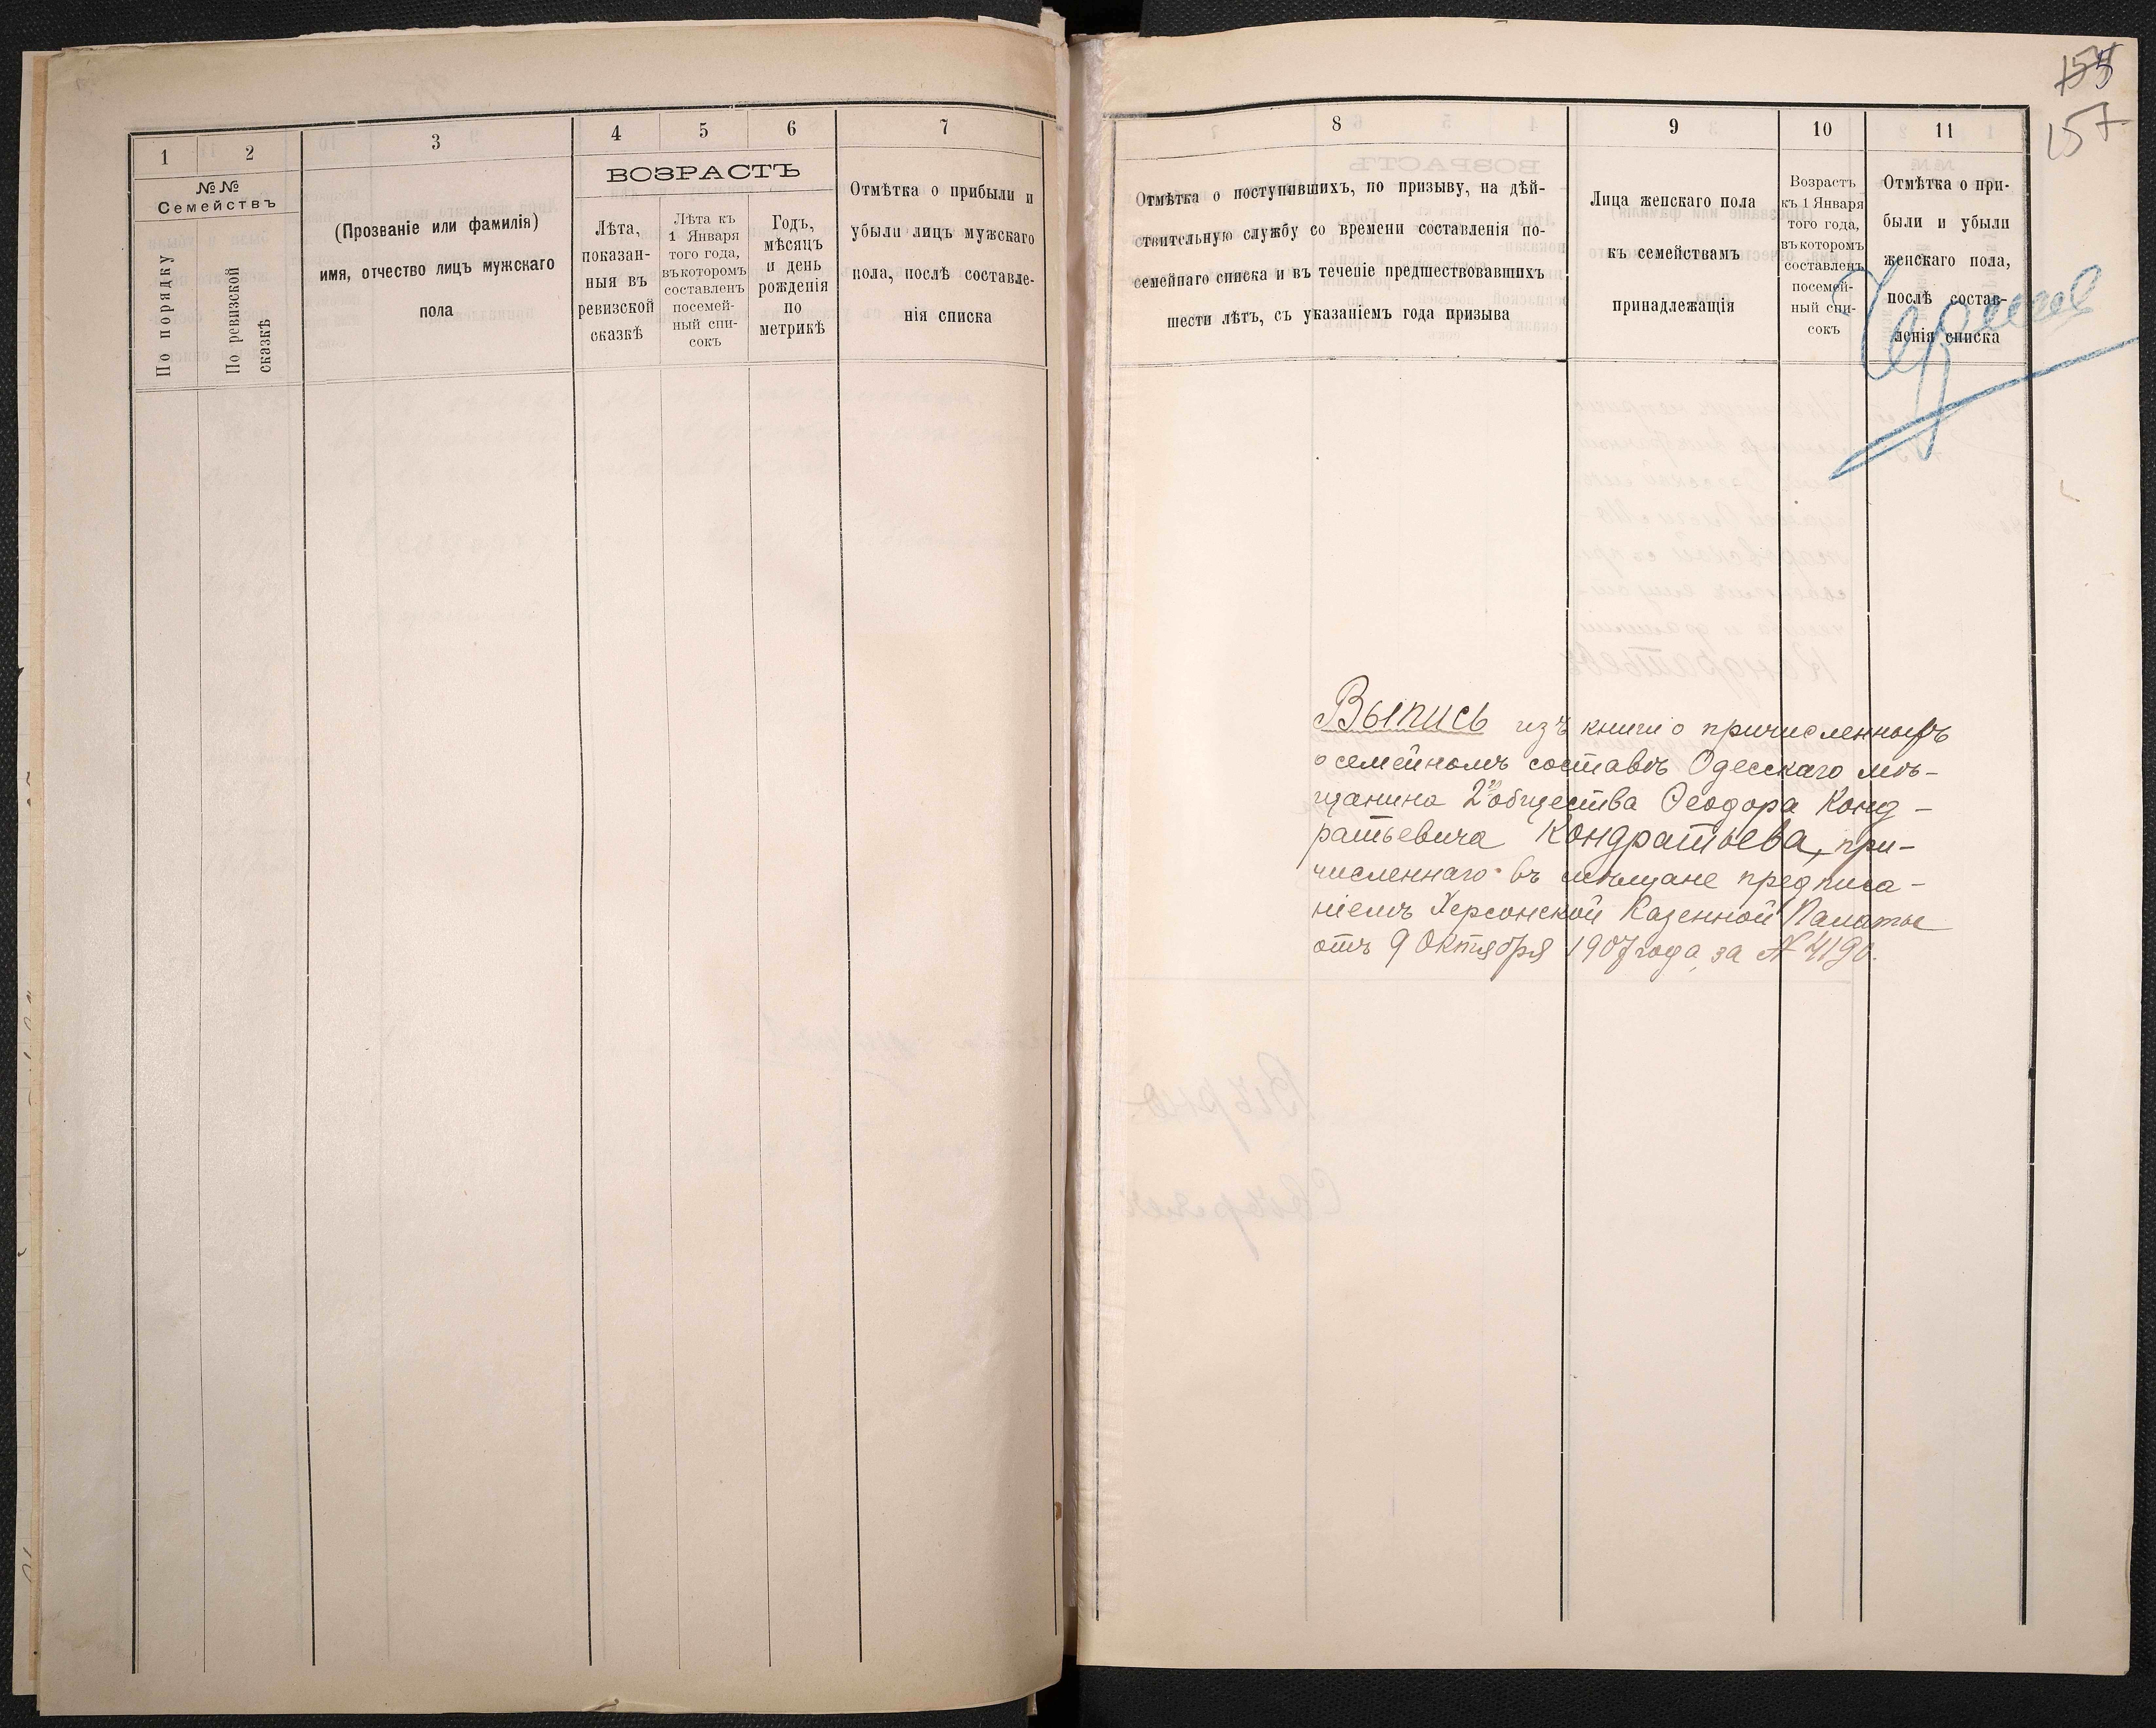 1
2
3
4
5
6
7
№№
Семействъ
По порядку
По ревизской
сказкѣ
(Прозваніе или фамилія)
имя, отчество лицъ мужскаго
пола
ВОЗРАСТЪ
Лѣта,
показан-
ныя въ
ревизской
сказкѣ
Лѣта къ
1 Января
того года,
въ которомъ
составленъ
посемей-
ный спи-
сокъ
Годъ,
мѣсяцъ
и день
рожденія
по
метрикѣ
Отмѣтка о прибыли и
убыли лицъ мужскаго
пола, послѣ составле-
нія списка
155
157
8
9
10
11
Отмѣтка о поступившихъ, по призыву, на дѣй-
ствительную службу со времени составленія по-
семейнаго списка и въ теченіе предшествовавшихъ
шести лѣтъ, съ указаніемъ года призыва
Лица женскаго пола
къ семействамъ
принадлежащія
Возрастъ
къ 1 Января
того года,
въ которомъ
составленъ
посемей-
ный спи-
сокъ
Отмѣтка о при-
были и убыли
женскаго пола,
послѣ состав-
ленія списка
Выпись изъ книги о причисленныхъ
о семейномъ составѣ Одесскаго мѣ-
щанина 2го общества Ѳеодора Конд-
ратьевича Кондратьева, при-
численнаго въ мѣщане предписа-
ніемъ Херсонской Казенной Палаты
отъ 9 Октября 1907 года за № 4190.